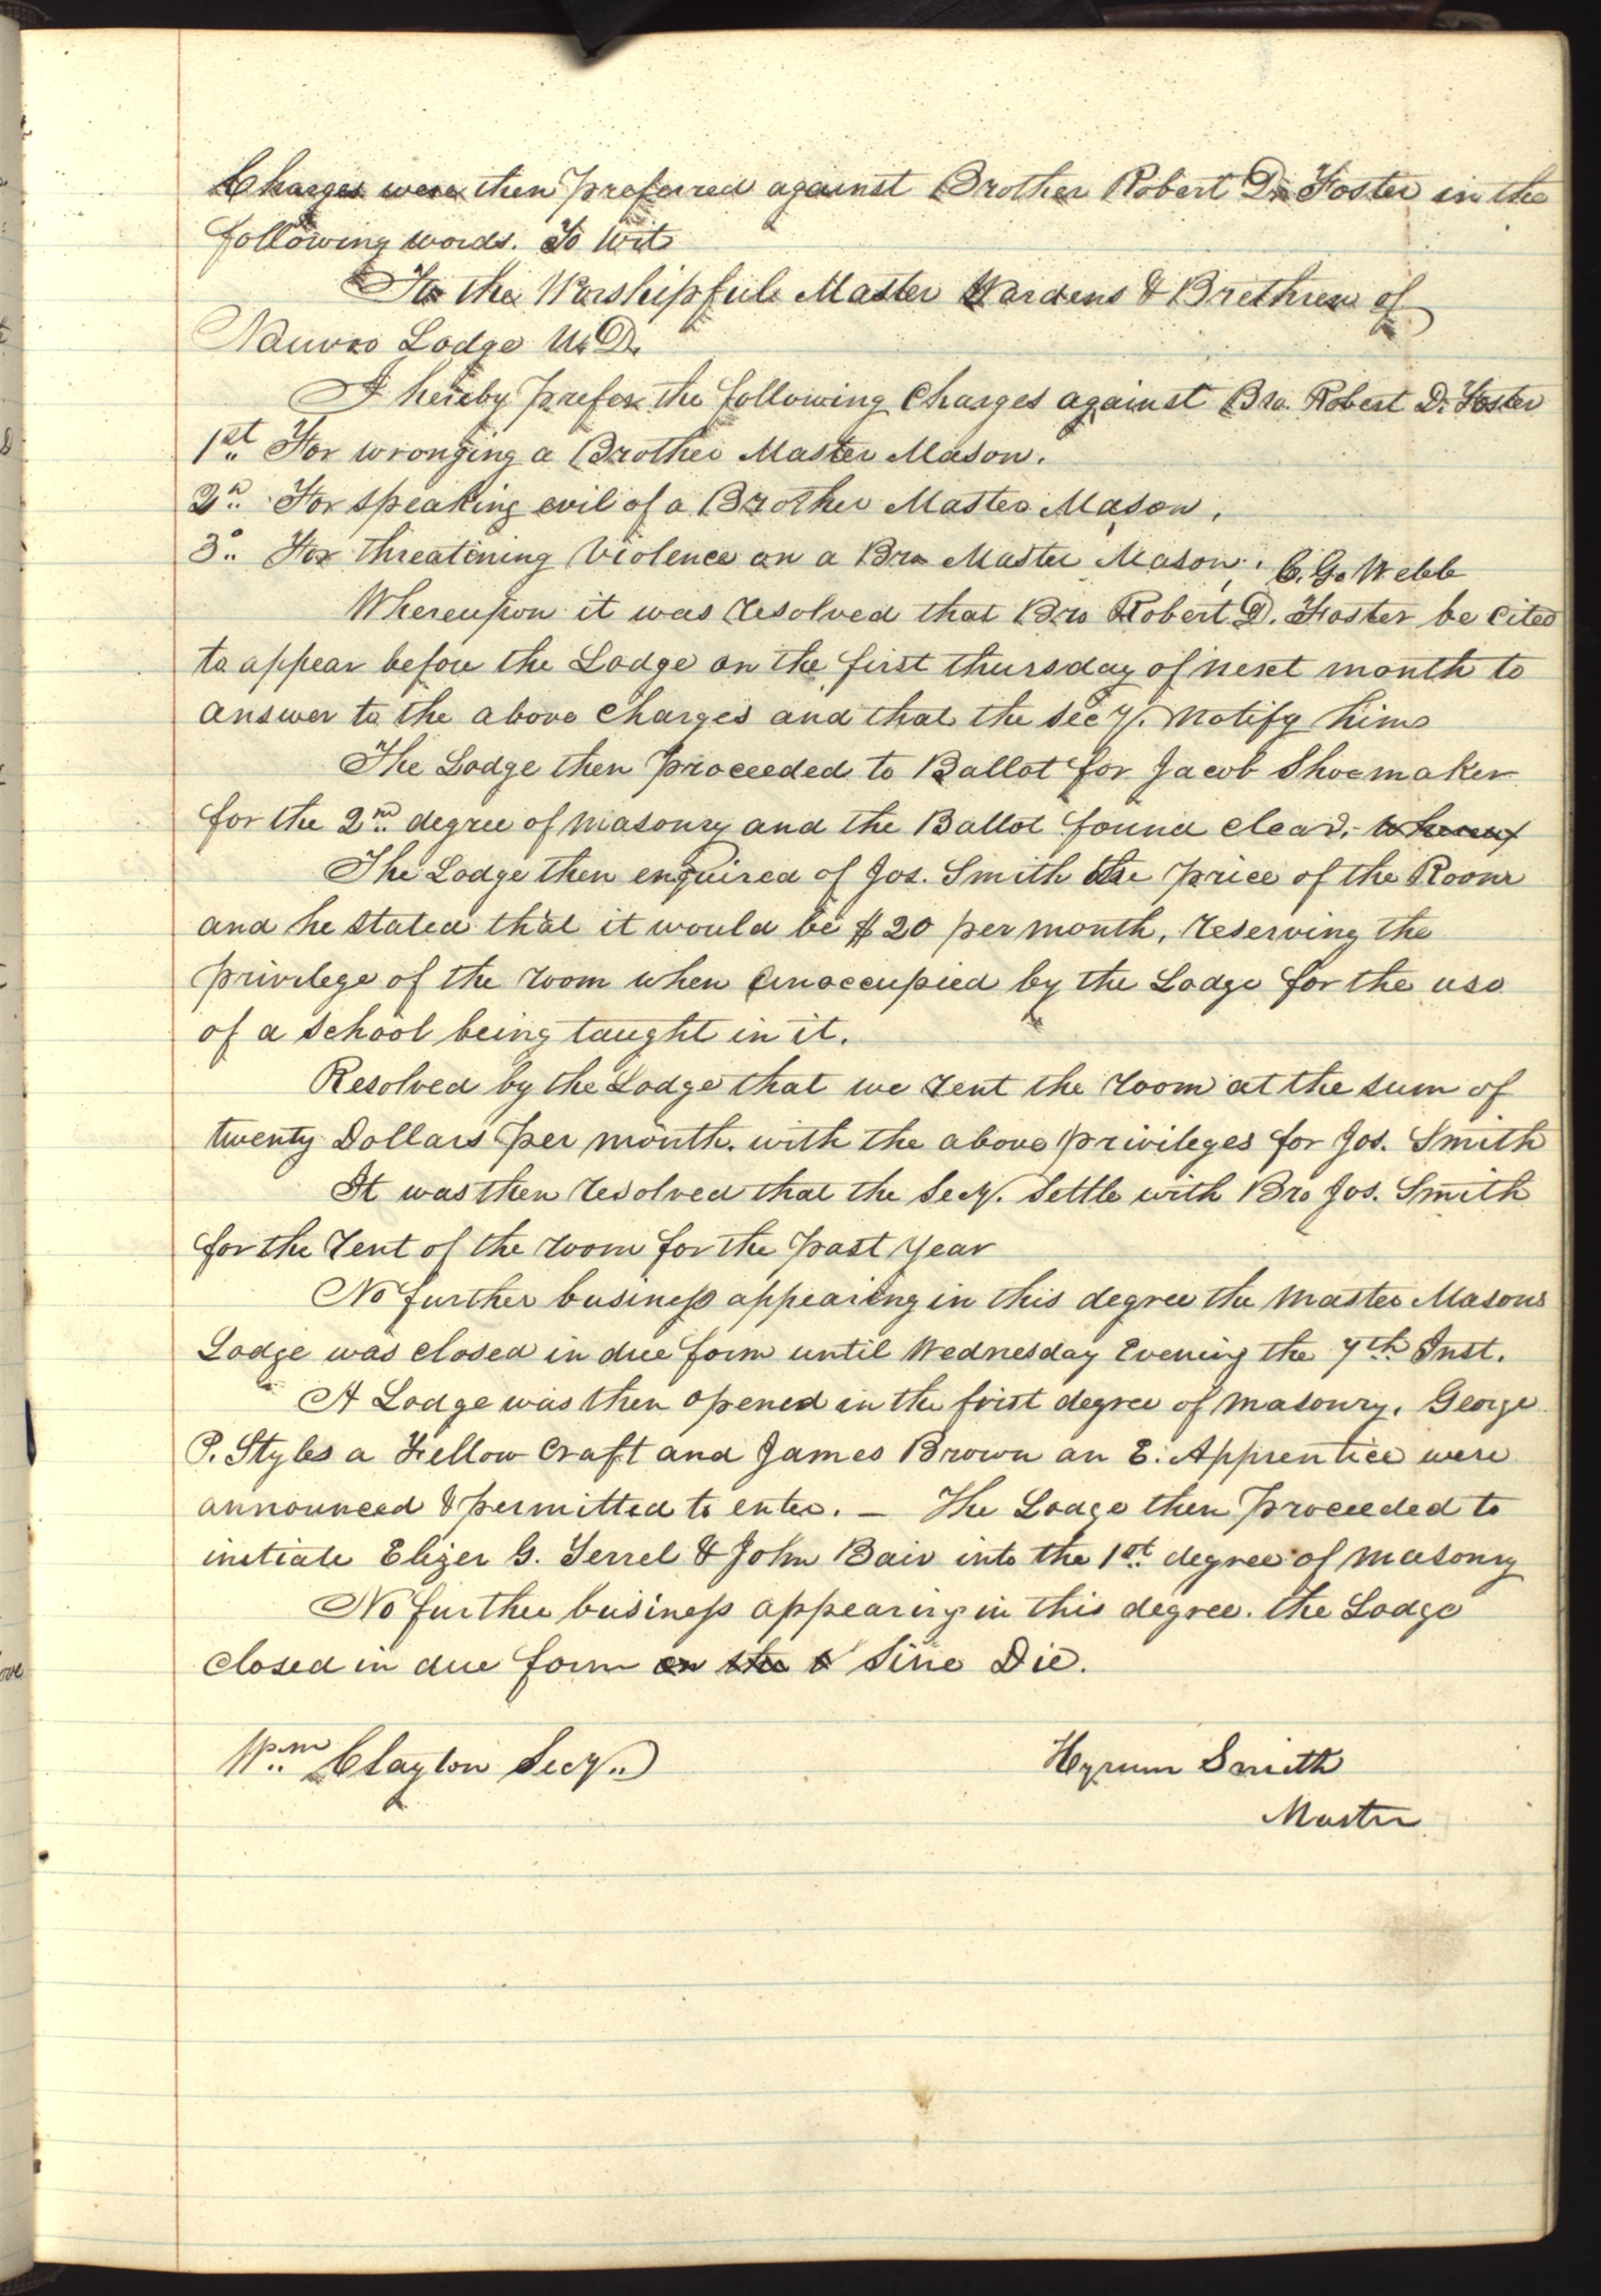 Charges were then preferred against Brother Robert D. Foster in the
following words. To Wit
To the Worshipfull Master Wardens & Brethren of
Nauvoo Lodge U. D.
I hereby prefer the following Charges against Bro. Robert D. Foster
1st For wronging a Brother Master Mason.
2d For speaking evil of a Brother Master Mason.
3d For threatening violence on a Bro Master Mason. C. G. Webb
Whereupon it was resolved that Bro Robert D. Foster be cited
to appear before the Lodge on the first thursday of next month to
answer to the above charges and that the Secy. Notify him
The Lodge then proceeded to Ballot for Jacob Shoemaker
for the 2nd degree of masonry and the Ballot found clear.
The Lodge then enquired of Jos. Smith the price of the Room
and he stated that it would be $20 per month, reserving the
privilege of the room when unoccupied by the Lodge for the use
of a school being taught in it.
Resolved by the Lodge that we rent the room at the sum of
twenty Dollars per month, with the above privileges for Jos. Smith
It was then resolved that the Secy. Settle with Bro Jos. Smith
for the rent of the room for the past year
No further business appearing in this degree the Master Masons
Lodge was closed in due form until Wednesday Evening the 7th Inst.
A Lodge was then opened in the first degree of masonry. George
P. Styles a Fellow Craft and James Brown an E. Apprentice were
announced & permitted to enter. — The Lodge then proceeded to
initiate Eliezer G. Terrel & John Bair into the 1st degree of masonry
No further business appearing in this degree. the Lodge
closed in due form on the s Sine Die.
Wm Clayton Secy.
Hyrum Smith
Master